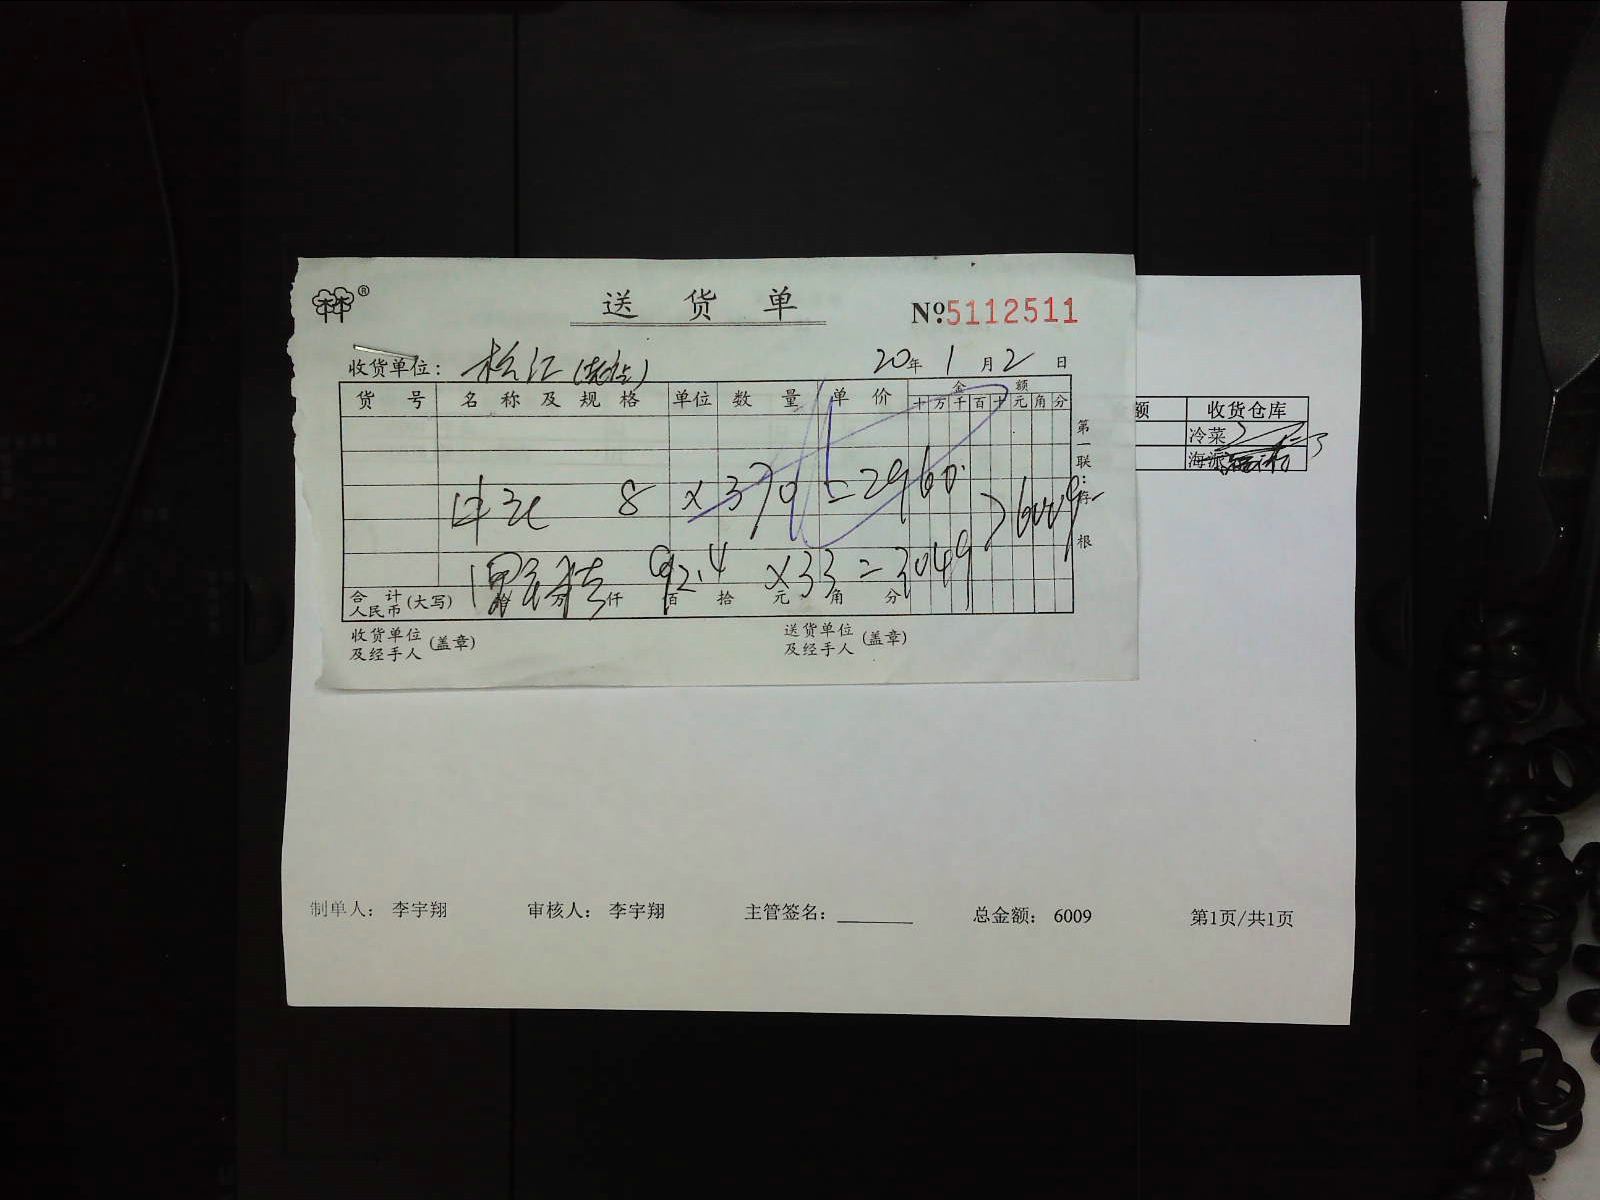 送 货 单
№5112511
收货单位: 松江 20年 1月2日
货号 名称及规格 单位 数量 单价 金额
十 万 千 百 十 元 角 分
8 × 370 = 2960
92.4 × 33 = 3049
6009
合计人民币(大写) 拾 万 仟 佰 拾 元 角 分
第一联:存根
收货单位及经手人(盖章) 送货单位及经手人(盖章)
额 收货仓库
冷菜
海派
制单人: 李宇翔 审核人: 李宇翔 主管签名: 总金额: 6009 第1页/共1页